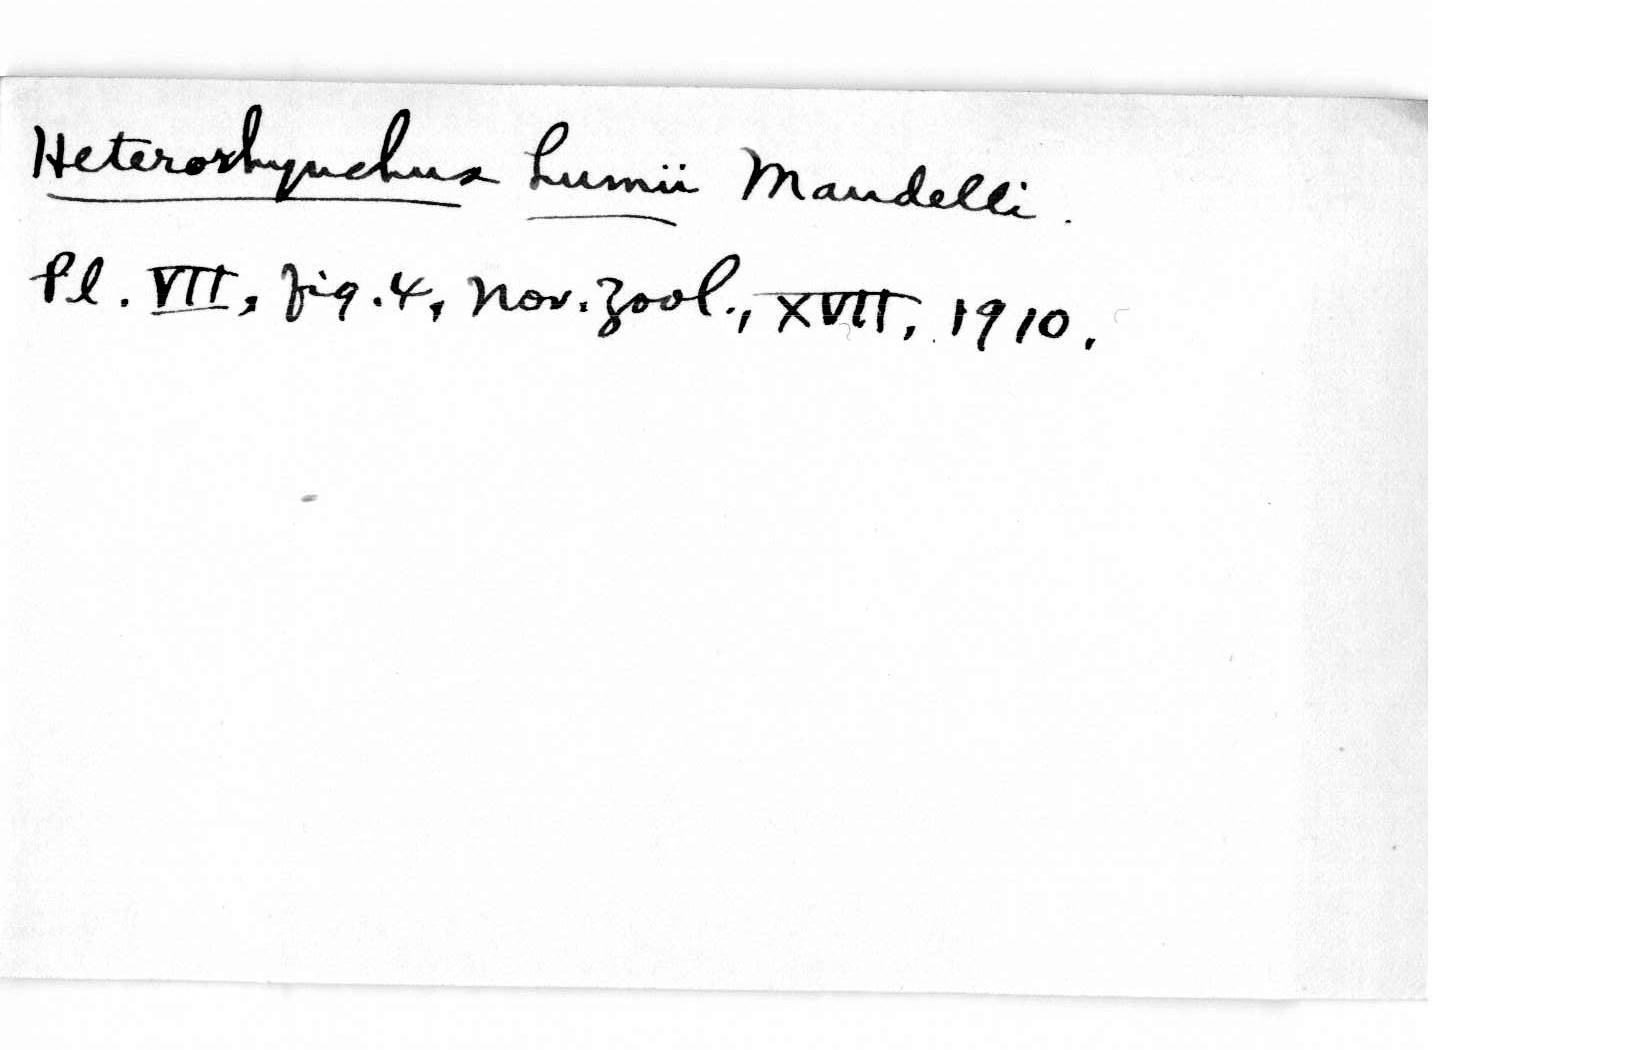 Heterorhynchus humii Mandelli.
Pl. VII, fig. 4, Nov. Zool., XVII, 1910.